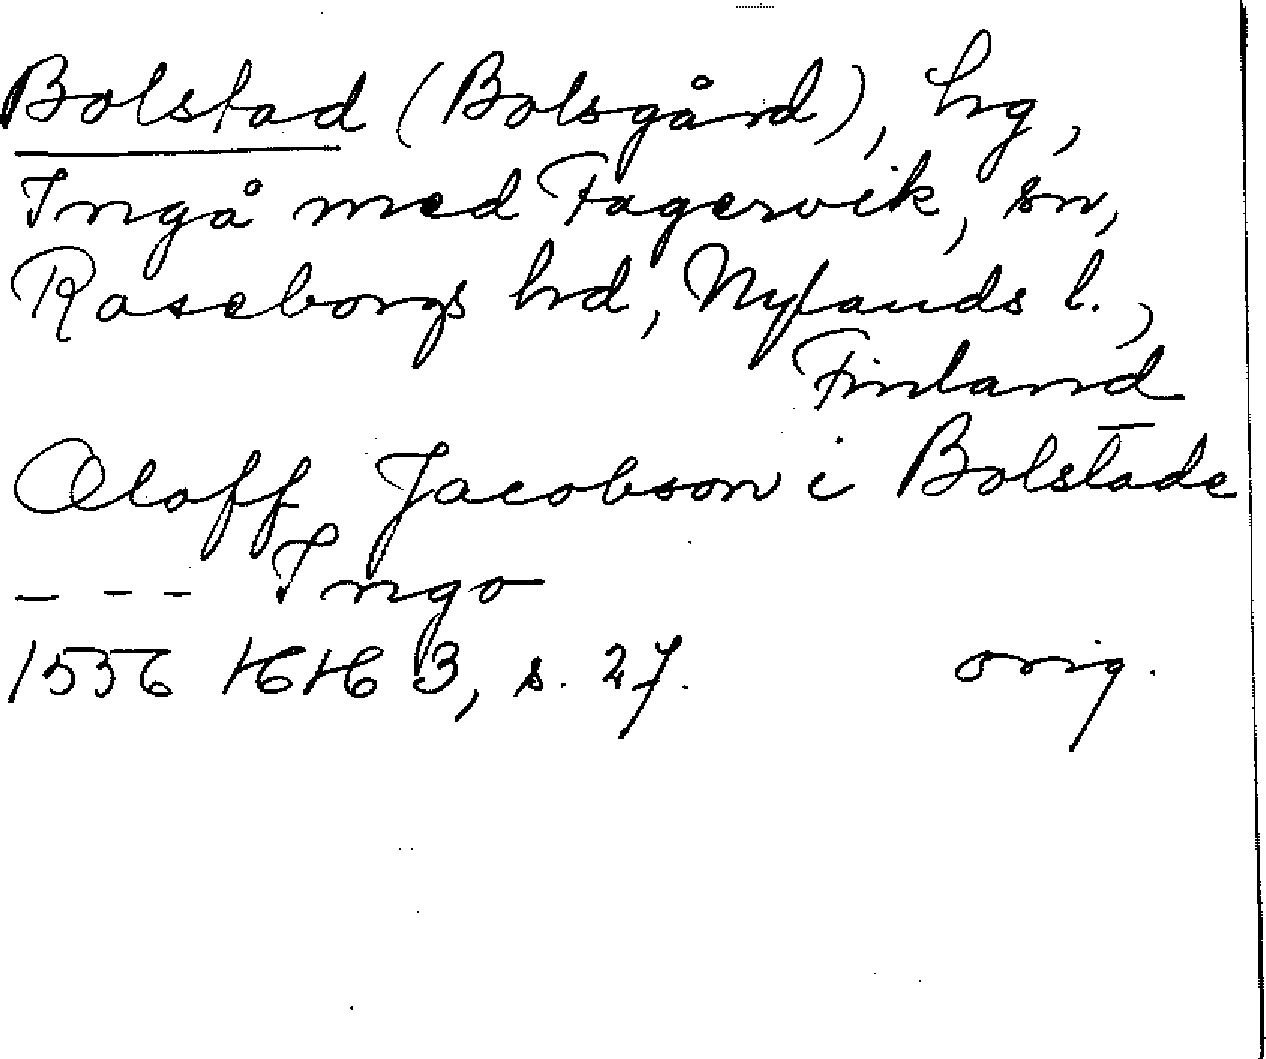 Bolstad (Bolsgård), hg,
Ingå med Fagervik, sn,
Raseborgs hd, Nylands l.,
Finland
Oloff Jacobson i Bolstade
– – – Ingo
1556 HH 3, s. 27. orig.